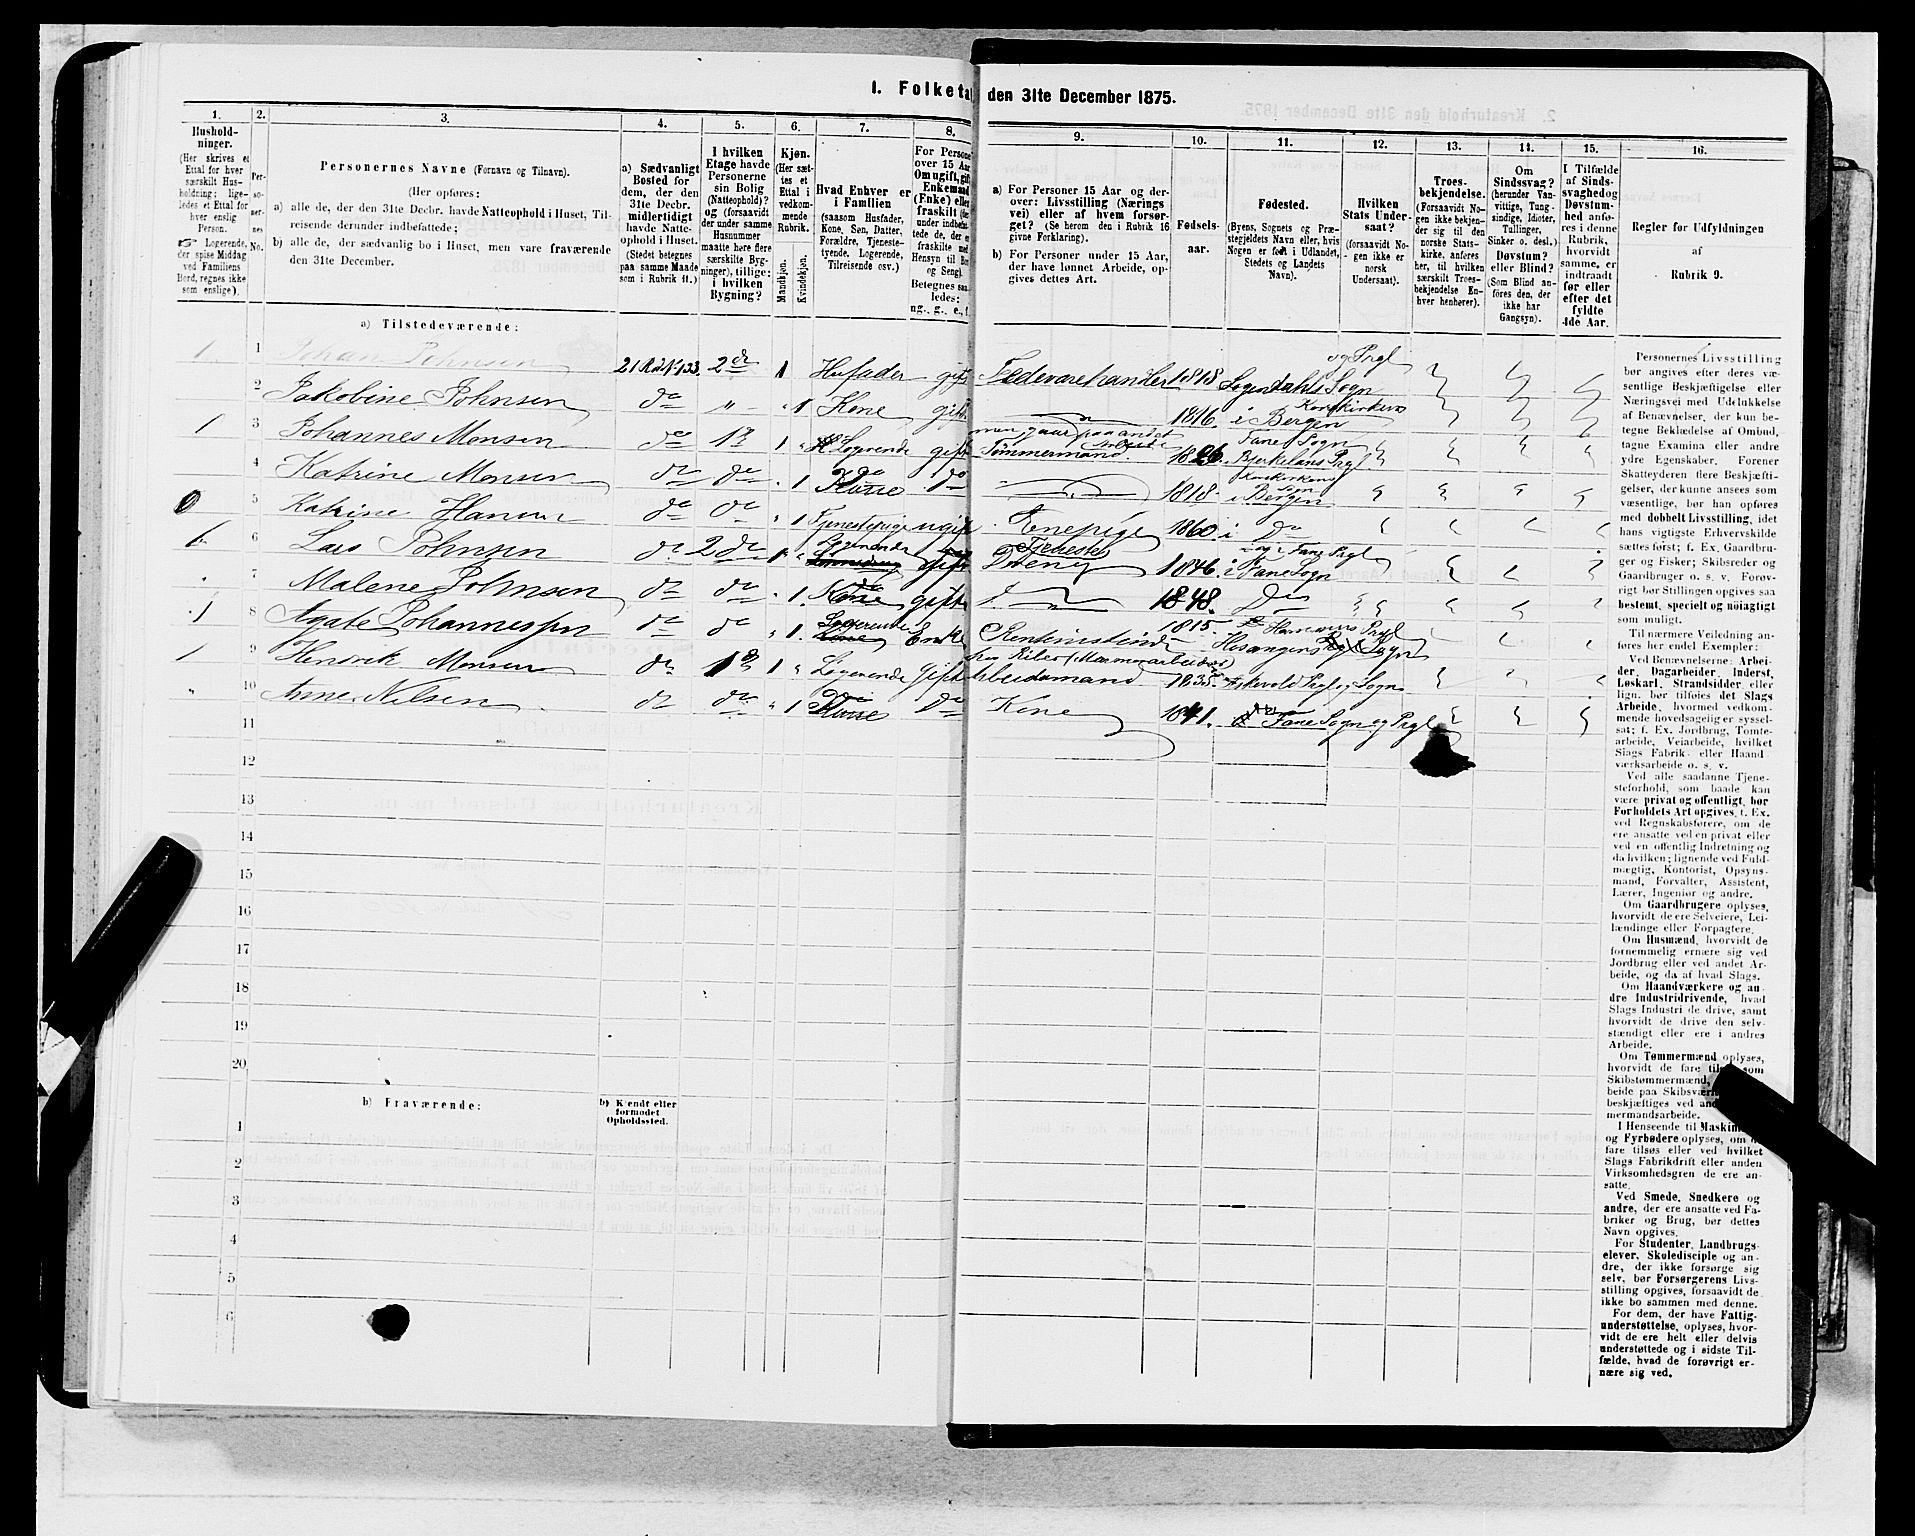 1. Folketæ
den 31te December 1875.
1.
Hushold-
ninger.
(Her skrives et
Ettal for hver
særskilt Hus-
holdning; lige-
ledes et Ettal for
hver enslig
Person.
☞ Logerende,
der spise Middag
ved Familiens
Bord, regnes ikke
som enslige).
2.
Per-
so-
ner-
nes
No.
3.
Personernes Navne (Fornavn og Tilnavn).
(Her opføres:
a) alle de, der den 31te Decbr. havde Natteophold i Huset, Til-
reisende derunder indbefattede;
b) alle de, der sædvanlig bo i Huset, men vare fraværende
den 31te December.
4.
a) Sædvanligt
Bosted for
dem, der den
31te Decbr.
midlertidigt
havde Natte-
ophold i Huset.
(Stedet betegnes
paa samme Maade
som i Rubrik 11.)
5.
I hvilken
Etage havde
Personerne
sin Bolig
(Natteophold)?
og (forsaavidt
der under samme
Husnummer
maatte høre flere
særskilte Byg-
ninger), tillige:
i hvilken
Bygning?
6.
Kjøn.
(Her sæt-
tes et
Ettal i
vedkom-
mende
Rubrik.
Mandkjøn.
Kvindekjøn.
7.
Hvad Enhver er
i Familien
(saasom Husfader,
Kone, Søn, Datter,
Forældre, Tjeneste-
tyende, Logerende,
Tilreisende osv.)
8.
For Persone
over 15 Aa
Om ugift, gift
Enkemand
(Enke) eller
fraskilt (de
under indbefa
tede de, der e
fraskilte med
Hensyn til Bo
og Seng).
Betegnes saa
ledes:
ug., g., e., f.
9.
a) For Personer 15 Aar og der-
over: Livsstilling (Nærings
vei) eller af hvem forsør-
get? (Se herom den i Rubrik 16
givne Forklaring).
b) For Personer under 15 Aar,
der have lønnet Arbeide, op-
gives dettes Art.
10.
Fødsels-
aar.
11.
Fødested.
(Byens, Sognets og Præ-
stegjeldets Navn eller, hvis
Nogen er født i Udlandet,
Stedets og Landets
Navn).
12.
Hvilken
Stats Under-
saat?
(forsaavidt No-
gen ikke er
norsk
Undersaat).
13.
Troes-
bekjendelse.
(Forsaavidt No-
gen ikke bekjen-
der sig til den
norske Stats-
kirke, anføres
her, til hvilken
særskilt Troes-
bekjendelse En-
hver henhører).
14.
Om
Sindssvag?
(herunder Van-
vittige, Tung-
sindige, Idioter,
Tullinger,
Sinker o. desl.)
Døvstum?
eller Blind?
(Som Blind an-
føres den, der
ikke har
Gangsyn).
15.
I Tilfælde
af Sinds-
svaghed og
Døvstum-
hed anfø-
res i denne
Rubrik,
hvorvidt
samme, er
indtraadt
før eller
efter det
fyldte
4de Aar.
16.
Regler for Udfyldningen
af
Rubrik 9.
a) Tilstedeværende:
1 1 Johan Johnsen 21 Rd N. 133. 2den 1 Husfader gift Fedevarehandler 1818 Sogndahls Sogn og Prgl
2 Jakobine Johnsen do „ „ 1 Kone gift 1816. i Bergen Korskirkens
1 3 Johannes Monsen do 1te 1 „ Logerende gift Tømmermand men gaar paa andet Arbeide 1826. Fane Sogn Birkelans Prgl
4 Katrine Monsen do do „ 1 do Kone do 1818. Korskirkens Sogn i Bergen
0 5 Katrine Hansen do do „ 1 Tjenestepige ugift Enepige 1860 i do
6 Lars Johnsen do 2den Logerende gift Tjeneste Dreng 1846. i Fane Sogn og i Fane Prgl
7 Malene Johnsen do do „ 1. Kone gift 1848. Do
1 8 Agate Johannessen do do „ 1. Logerende Kone Enke 1815. Sogn
1 9 Hendrik Monsen do 1te 1 „ Logerende gift Arbeidsmand 1835. Askevold Prgl og Sogn
10 Anne Nilsen do do „ 1 do do Kone 1841. Fane Sogn og Prgl
11
12
13
14
15
16
17
18
19
20
b) Fraværende:
b) Kjendt eller
formodet
Opholdssted.
1
2
3
4
5
6
Personernes Livsstilling
bør angives efter deres væ-
sentlige Beskjæftigelse eller
Næringsvei med Udelukkelse
af Benævnelser, der kun be-
tegne Beklædelse af Ombud,
tagne Examina eller andre
ydre Egenskaber. Forener
Skatteyderen flere Beskjæfti-
gelser, der kunne ansees som
væsentlige, bør han opføres
med dobbelt Livsstilling, idet
hans vigtigste Erhvervskilde
sættes først; f. Ex. Gaardbru-
ger og Fisker; Skibsreder og
Gaardbruger o. s. v. Forøv-
rigt bør Stillingen opgives saa
bestemt, specielt og nøiagtigt
som muligt.
Til nærmere Veiledning an-
føres her endel Exempler:
Ved Benævnelserne: Arbei-
der, Dagarbeider, Inderst,
Løskarl, Strandsidder eller
lign. bør tilføies det Slags
Arbeide, hvormed vedkom-
mende hovedsagelig er syssel-
sat; f. Ex. Jordbrug, Tomte-
arbeide, Veiarbeide, hvilket
Slags Fabrik- eller Haand
værksarbeide o. s. v.
Ved alle saadanne Tjene-
steforhold, som baade kan
være privat og offentligt, bør
Forholdets Art opgives, t. Ex.
ved Regnskabsførere, om de
ere ansatte ved en privat eller
ved en offentlig Indretning og
da hvilken; lignende ved Fuld-
mægtig, Kontorist, Opsyns-
mand, Forvalter, Assistent,
Lærer, Ingeniør og andre.
Om Gaardbrugere oplyses,
hvorvidt de ere Selveiere, Lei-
lændinge eller Forpagtere.
Om Husmænd, hvorvidt de
fornemmelig ernære sig ved
Jordbrug eller ved andet Ar-
beide, og da af hvad Slags.
Om Haandværkere og an-
dre Industridrivende, hvad
Slags Industri de drive, samt
hvorvidt de drive den selv-
stændigt eller ere i andres
Arbeide.
Om Tømmermænd oplyses,
hvorvidt de fare tils som
Skibstømmermænd,
beide paa Skibsvær
beskjæftiges ved and
mermandsarbeide.
I Henseende til Maskin
og Fyrbødere oplyses, om
fare tilsøs eller ved hvilket
Slags Fabrikdrift eller anden
Virksomhedsgren de ere an-
satte.
Ved Smede, Snedkere og
andre, der ere ansatte ved Fa-
briker og Brug, bør dettes
Navn opgives.
For Studenter, Landbrugs-
elever, Skoledisciple og an-
dre, der ikke forsørge sig
selv, bør Forsørgerens Livs-
stilling opgives, forsaavidt de
ikke bo sammen med denne.
For dem, der have Fattig-
understøttelse, oplyses, hvor-
vidt de ere helt eller delvis
understøttede og i sidste Til-
fælde, hvad de forøvrigt er-
nære sig ved.